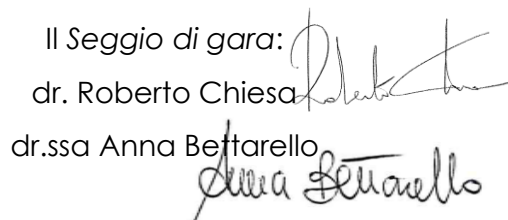 Il Seggio di gara:
dr. Roberto Chiesa
dr.ssa Anna Bettarello
Anna Bettarello